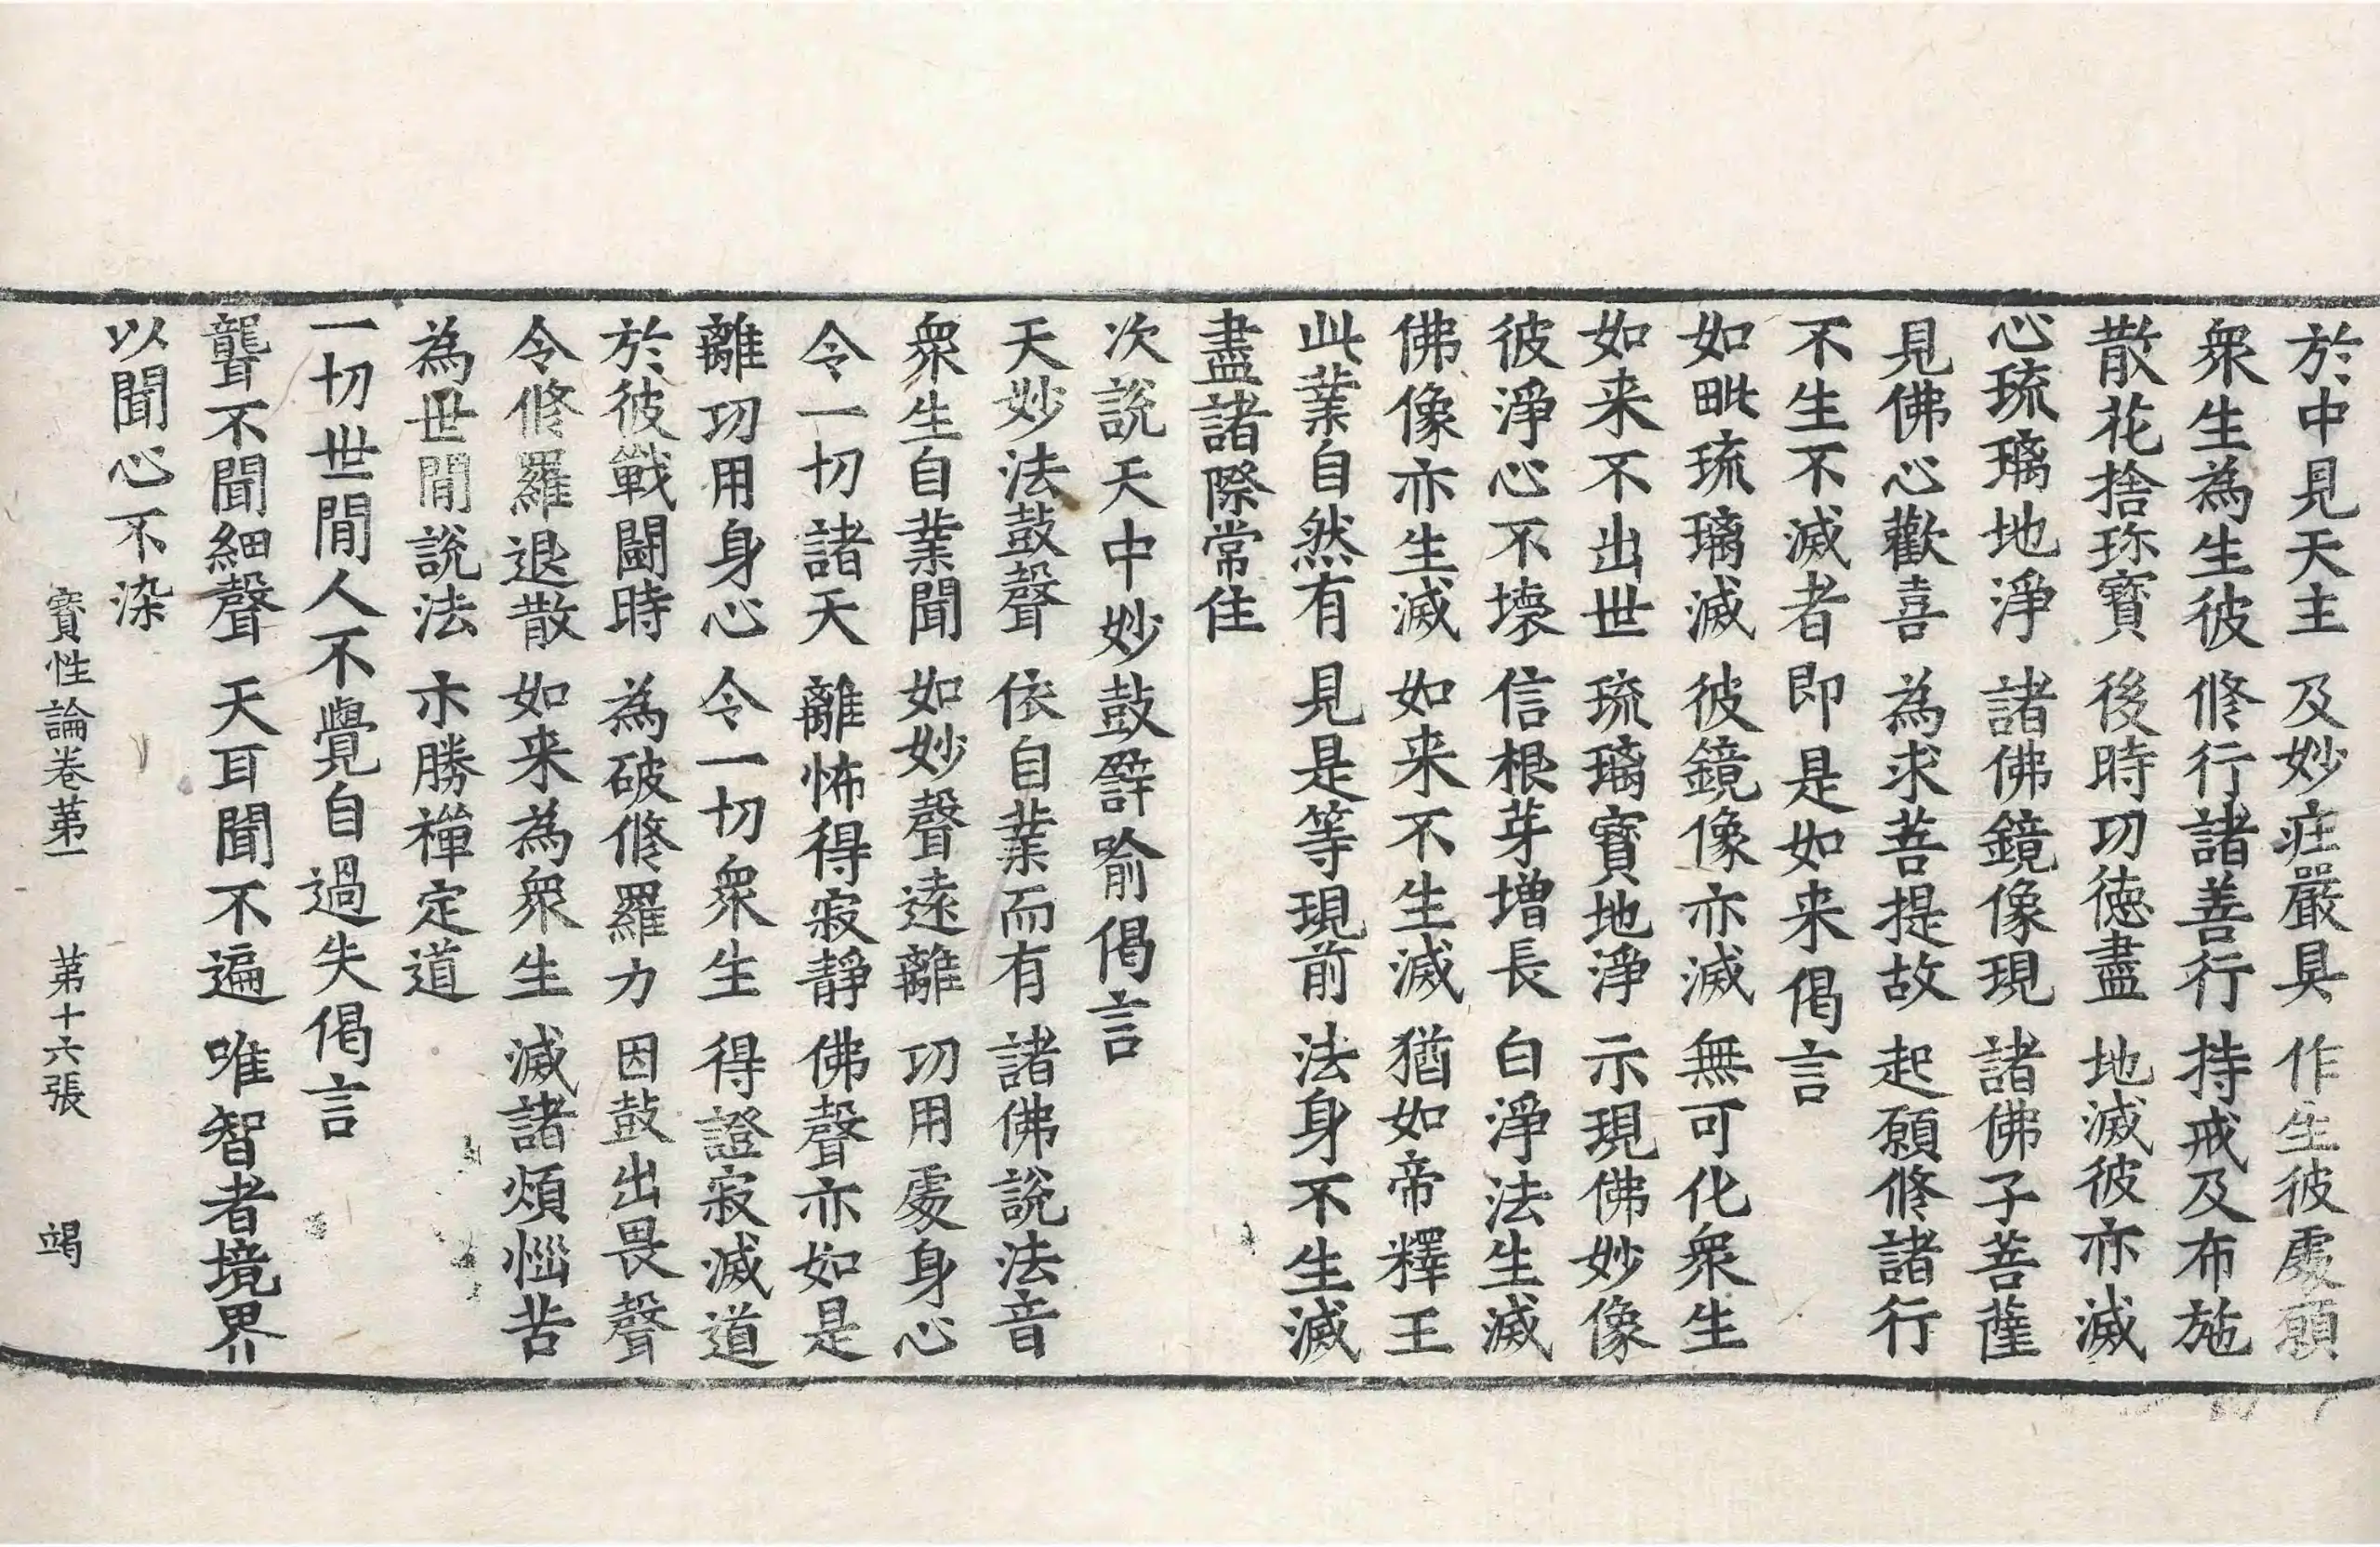 於中見天主 及妙疰嚴具 作生彼處願
衆生為生彼 修行諸善行 持戒及布施
散花捨珎寶 後時功德盡 地滅彼亦滅
心琉璃地淨 諸佛鏡像現 諸佛子菩薩
見佛心歡喜 為求菩提故 起願修諸行
不生不滅者即是如来偈言
如毗琉璃滅 彼鏡像亦滅 無可化衆生
如来不出世 琉璃寶地淨 示現佛妙像
彼淨心不壞 信根芽增長 白淨法生滅
佛像亦生滅 如来不生滅 猶如帝釋王
此業自然有 見是等現前 法身不生滅
盡諸際常住
次說天中妙鼓譬喻偈言
天妙法鼓聲 依自業而有 諸佛說法音
衆生自業聞 如妙聲遠離 功用處身心
令一切諸天 離怖得寂靜 佛聲亦如是
離功用身心 令一切衆生 得證寂滅道
於彼戰鬪時 為破修羅力 因鼓出畏聲
令修羅退散 如来為衆生 滅諸煩惱苦
為世間說法 示勝禪定道
一切世間人不覺自過失偈言
聾不聞細聲 天耳聞不遍 唯智者境界
以聞心不染
寶性論卷苐一 苐十六張 竭